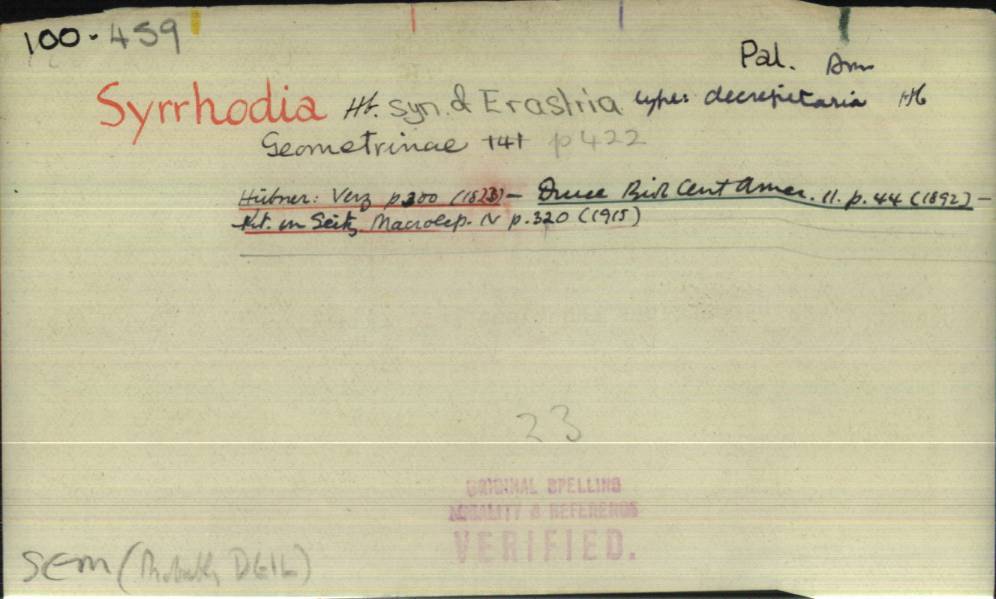 100.459
Pal. Am
Syrrhodia Hb. syn. of Erastria type: decrepitaria Hb
Geometrinae 141 p422
Hübner: Verz p300 (1823) – Druce Biol Cent Amer. II. p. 44 (1892) –
in Seitz Macrolep. IV p. 320 (1915)
23
ORIGINAL SPELLING
LOCALITY & REFERENCE
VERIFIED.
SEM (Probably DEIL)